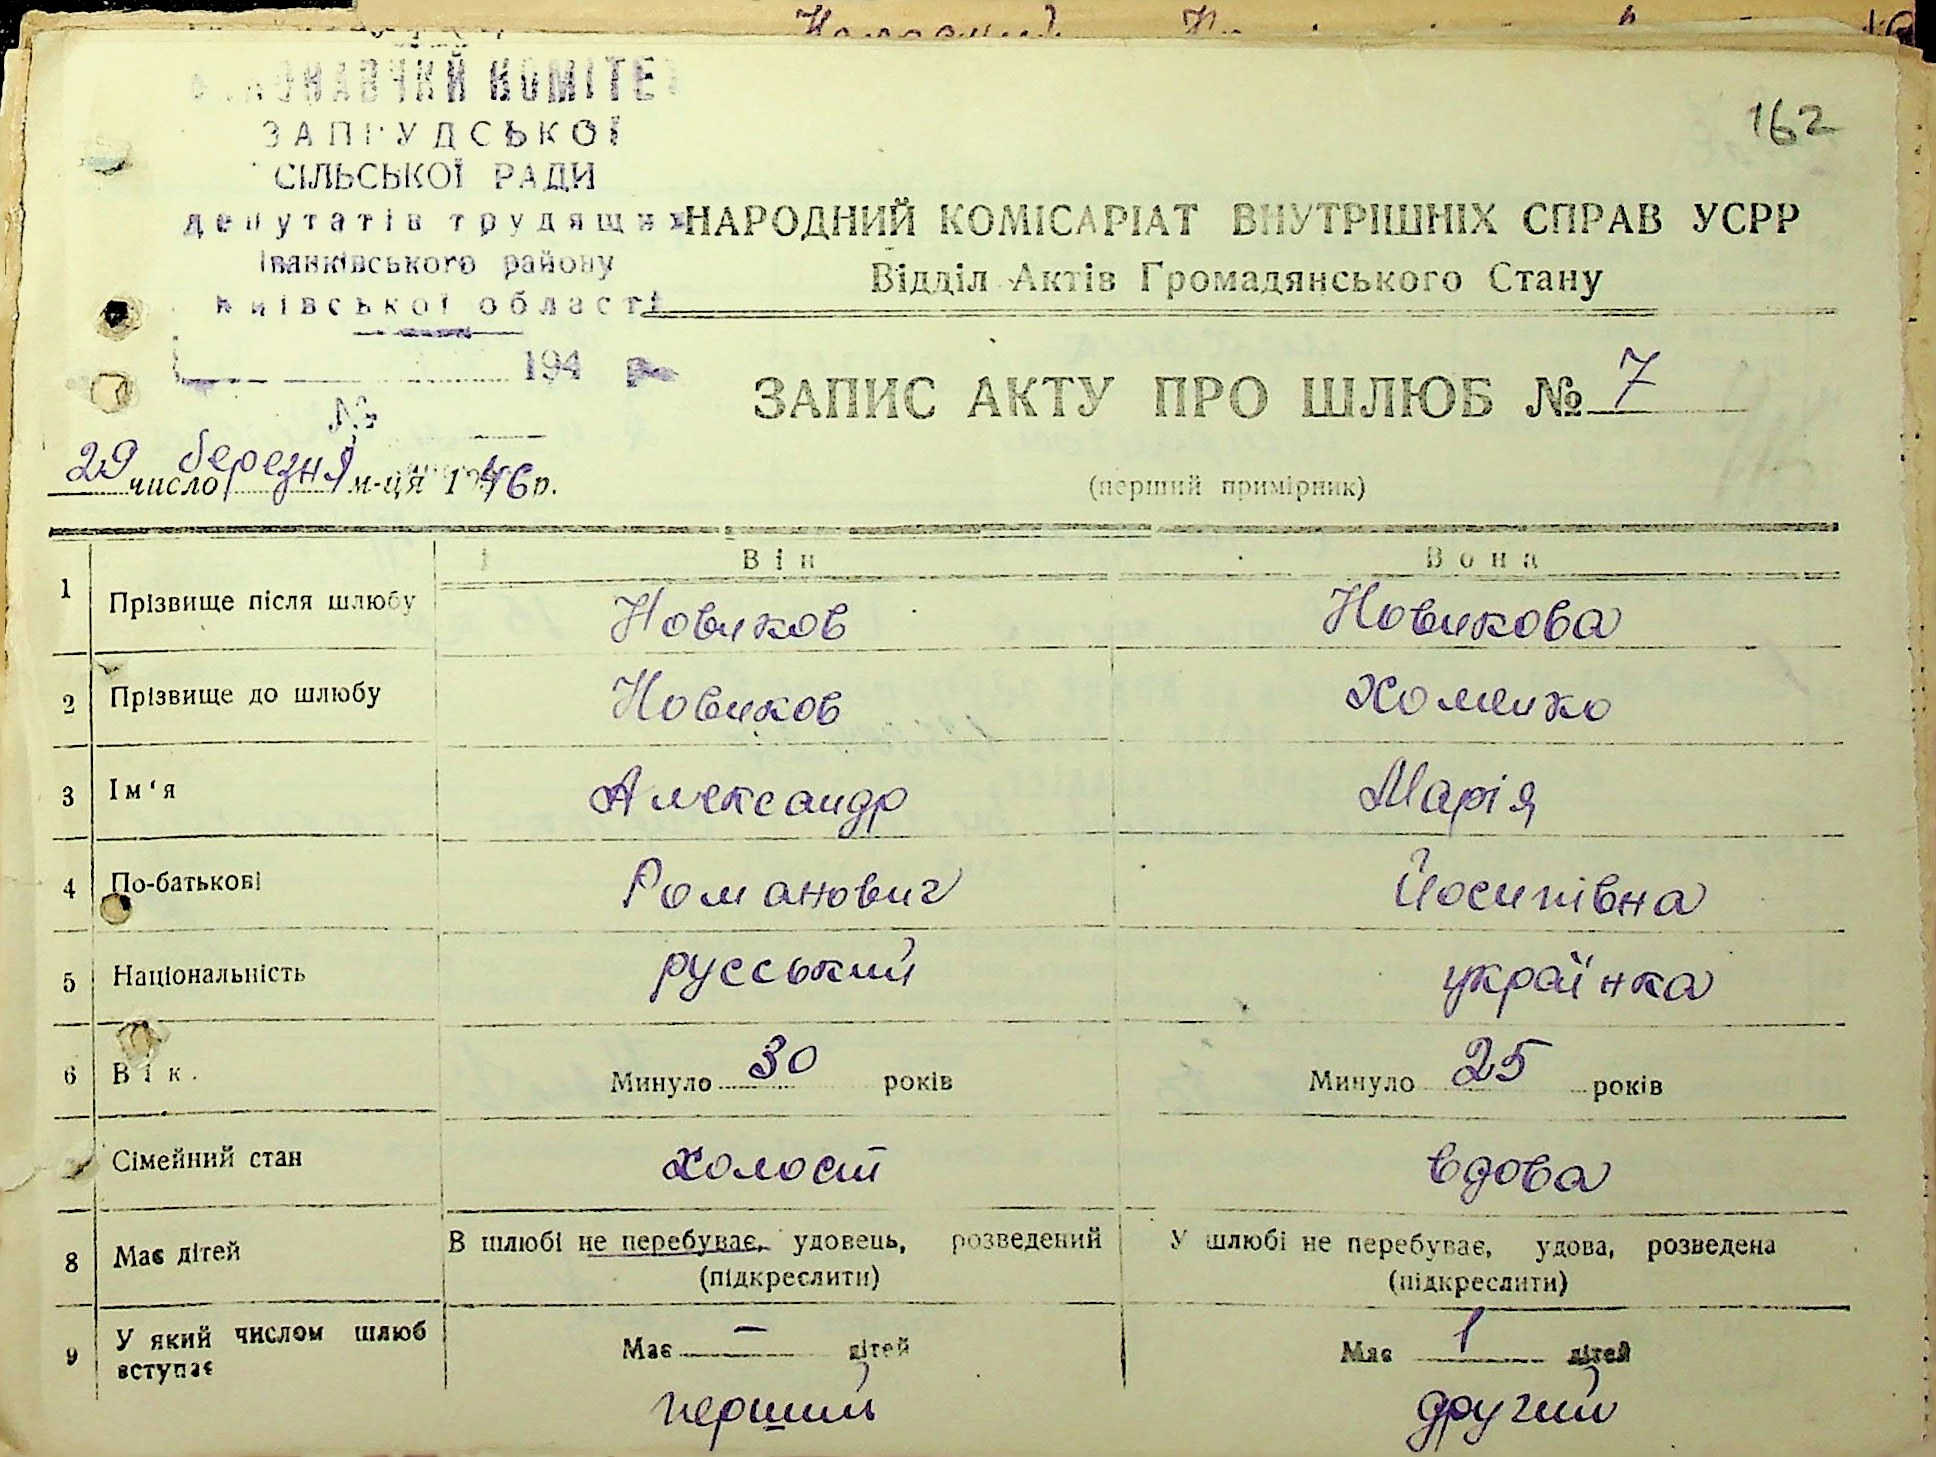 162
ВИКОНАВЧИЙ КОМІТЕТ
ЗАПРУДСЬКОЇ
СІЛЬСЬКОЇ РАДИ
депутатів трудящих
Іванківського району
Київської області
194 р.
№
НАРОДНИЙ КОМІСАРІАТ ВНУТРІШНІХ СПРАВ УСРР
Відділ Актів Громадянського Стану
ЗАПИС АКТУ ПРО ШЛЮБ № 7
29 число березня м-ця 1946 р.
(перший примірник)
Він Вона
1 Прізвище після шлюбу Новиков Новикова
2 Прізвище до шлюбу Новиков Хоменко
3 Ім'я Александр Марія
4 По-батькові Романович Йосипівна
5 Національність русський українка
6 Вік. Минуло 30 років Минуло 25 років
Сімейний стан холост вдова
8 Має дітей В шлюбі не перебуває, удовець, розведений У шлюбі не перебуває, удова, розведена
(підкреслити) (підкреслити)
9 У який числом шлюб вступає Має — дітей Має 1 дітей
перший другий